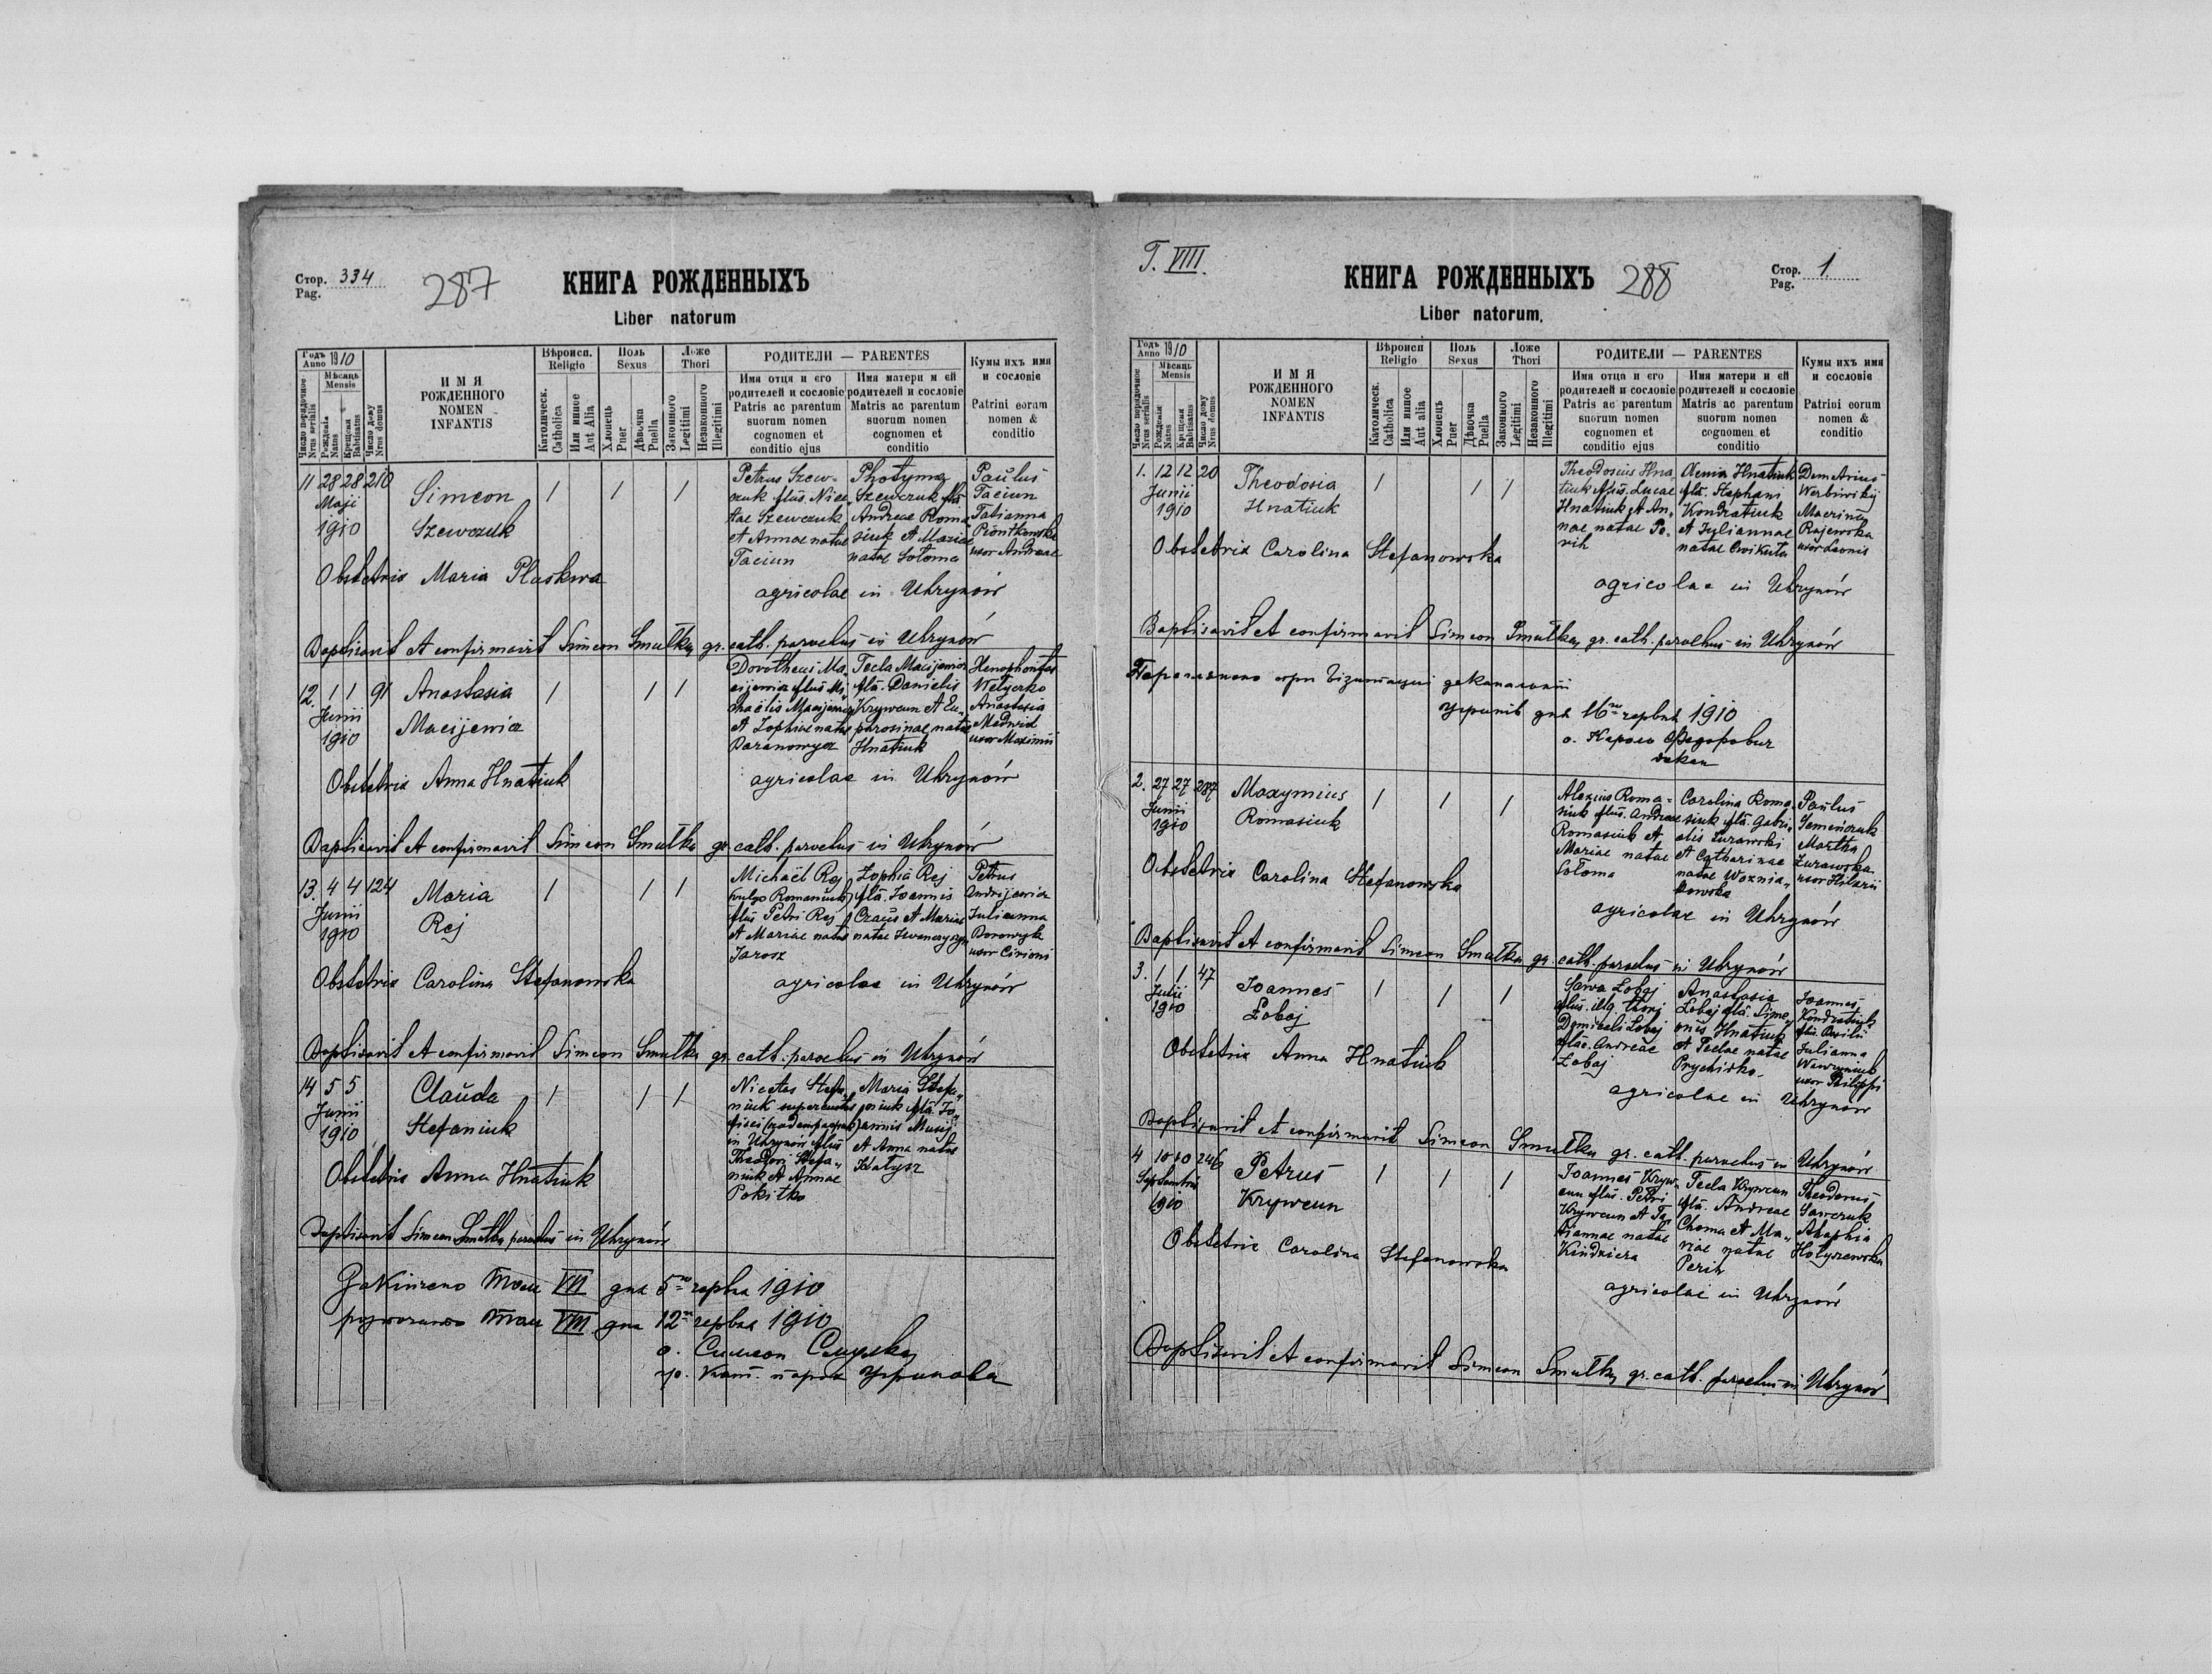 Стор. 334
Pag.
287
КНИГА РОЖДЕННЫХЪ
Liber natorum
Годъ 1910
Anno
Мѣсяць
Mensis
Число порядочное
Nrus serialis
Рожденія
Natus
Крещенія
Babtisatus
Число дому
Nrus domus
ИМЯ
РОЖДЕННОГО
NOMEN
INFANTIS
Вѣроисп.
Religio
Католическ.
Catholica
Или инное
Aut Alia
Полъ
Sexus
Хлопець
Puer
Дѣвочка
Puella
Ложе
Thori
Законного
Legitimi
Незаконного
Illegitimi
РОДИТЕЛИ — PARENTES
Имя отця и его
родителей и сословіе
Patris ac parentum
suorum nomen
cognomen et
conditio ejus
Имя матери и ей
родителей и сословіе
Matris ac parentum
suorum nomen
cognomen et
conditio
Кумы ихъ имя
и сословіе
Patrini eorum
nomen &
conditio
11 28 28 210
Maji
1910
Simeon
Szewczuk
1 1 1
Petrus Szew-
czuk filius Nice-
tae Szewczuk
et Annae natae
Taciun
Photyma
Szewczuk filia
Andreae Roma-
siuk et Mariae
natae Sołoma
Paulus
Taciun
Tatianna
Piontkowska
uxor Andreae
Obstetrix Maria Plaskwa
agricolae in Uhrynów
Baptisavit et confirmavit Simeon Smulka gr. cath. parochus in Uhrynów
12. 1 1 91
Junii
1910
Anastasia
Macijewicz
1 1 1
Dorotheus Ma-
cijewicz filius Mi-
chaelis Macijewicz
et Zophiae natae
Baranowycz
Tecla Macijewicz
filia Danielis
Krywcun et Eu-
phrosinae natae
Hnatiuk
Xenophontas
Wełyczko
Anastasia
Medwid
uxor Maximi
Obstetrix Anna Hnatiuk
agricolae in Uhrynów
Baptisavit et confirmavit Simeon Smulka gr. cath. parochus in Uhrynów
13. 4 4 124
Junii
1910
Maria
Rej
1 1 1
Michaël Rej
(vulgo Romaniuk)
filius Petri Rej
et Mariae natae
Jarosz
Zophia Rej
filia Joannis
Czaus et Mariae
natae Iwanczyszyn
Petrus
Andrijewicz
Julianna
Borowyk
uxor
Obstetrix Carolina Stefanowska
agricolae in Uhrynów
Baptisavit et confirmavit Simeon Smulka gr. cath. parochus in Uhrynów
14 5 5
Junii
1910
Clauda
Stefaniuk
1 1 1
Nicetas Stefa-
niuk
in Uhrynów filius
Theodori Stefa-
niuk et Annae
Pokitko
Maria Stefa-
niuk filia Jo-
annis Musij
et Anna natae
Hałysz
Obstetrix Anna Hnatiuk
Baptisavit Simeon Smulka parochus in Uhrynów
Закінчено том VII дня 5го червня 1910
розпочато том VIII дня 12го червня 1910
о. Симеон Смулка
гр. кат. парох Угринова
Т. VIII.
КНИГА РОЖДЕННЫХЪ
288
Стор. 1.
Pag.
Liber natorum.
Годъ 1910
Anno
Мѣсяць
Mensis
Число порядочное
Nrus serialis
Рожденія
Natus
Крещенія
Babtisatus
Число дому
Nrus domus
ИМЯ
РОЖДЕННОГО
NOMEN
INFANTIS
Вѣроисп
Religio
Католическ.
Catholica
Или инное
Aut alia
Полъ
Sexus
Хлопець
Puer
Дѣвочка
Puella
Ложе
Thori
Законного
Legitimi
Незаконного
Illegitimi
РОДИТЕЛИ — PARENTES
Имя отця и его
родителей и сословіе
Patris ac parentum
suorum nomen
cognomen et
conditio ejus
Имя матери и ей
родителей и сословіе
Matris ac parentum
suorum nomen
cognomen et
conditio
Кумы ихъ имя
и сословіе
Patrini eorum
nomen &
conditio
1. 12 12 20
Junii
1910
Theodosia
Hnatiuk
1 1 1
Theodosius Hna-
tiuk filius Lucae
Hnatiuk et An-
nae natae Po-
wih
Xenia Hnatiuk
filia Stephani
Kondratiuk
et Juliannae
natae Cwikuta
Demetrius
Werbiwskij
Macrina
Rajewska
uxor Leonis
Obstetrix Carolina Stefanowska
agricolae in Uhrynów
Baptisavit et confirmavit Simeon Smulka gr. cath. parochus in Uhrynów
Переглянено при візитації деканальній
Угринів дня 16го червня 1910
о. Кароль Федорович
декан
2. 27 27 287
Junii
1910
Maxymius
Romasiuk
1 1 1
Alexius Roma-
siuk filius Andreae
Romasiuk et
Mariae natae
Sołoma
Carolina Roma-
siuk filia Gabri-
elis Żurawski
et Catharinae
natae Woznia-
kowska
Paulus
Semeńczuk
Martha
Żurawska
uxor Hilarii
Obstetrix Carolina Stefanowska
agricolae in Uhrynów
Baptisavit et confirmavit Simeon Smulka gr. cath. parochus in Uhrynów
3. 1 1 47
Julii
1910
Joannes
Łobaj
1 1 1
Sawa Łobaj
filius illeg. thori
Łobaj
filiae Andreae
Łobaj
Anastasia
Łobaj filia Sime-
onis Hnatiuk
et Teclae natae
Prychidko
Joannes
Kondratiuk
fil. Basilii
Julianna
Wawryniuk
uxor Philippi
Obstetrix Anna Hnatiuk
agricolae in Uhrynów
Baptisavit et confirmavit Simeon Smulka gr. cath. parochus in Uhrynów
4 10 10 246
Septembris
1910
Petrus
Krywcun
1 1 1
Joannes Kryw-
cun filius Petri
Krywcun et Ta-
tiannae natae
Kindziera
Tecla Krywcun
filia Andreae
Choma et Ma-
riae natae
Perih
Theodorus
Sawczuk
Ahaphia
Hołyszewska
Obstetrix Carolina Stefanowska
agricolae in Uhrynów
Baptisavit et confirmavit Simeon Smulka gr. cath. parochus in Uhrynów